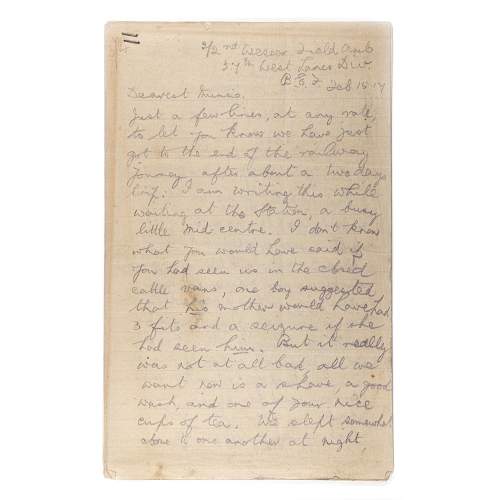 2/2nd Wessex Field Amb
57th West Lancs Div
B.E.F. Feb 15 17
Dearest
Just a few lines, at any rate,
to let you know we have just
got to the end of the railway
journey, after about a two days
trip. I am writing this while
waiting at the Station, a busy
little mid centre. I don't know
what you would have said if
you had seen us in the closed
cattle vans, one boy suggested
that his mother would have had
3 fits and a seizure if she
had seen him. But it really
was not at all bad, all we
want now is a shave, a good
wash, and one of your nice
cups of tea. We slept somewhat
close to one another at night,